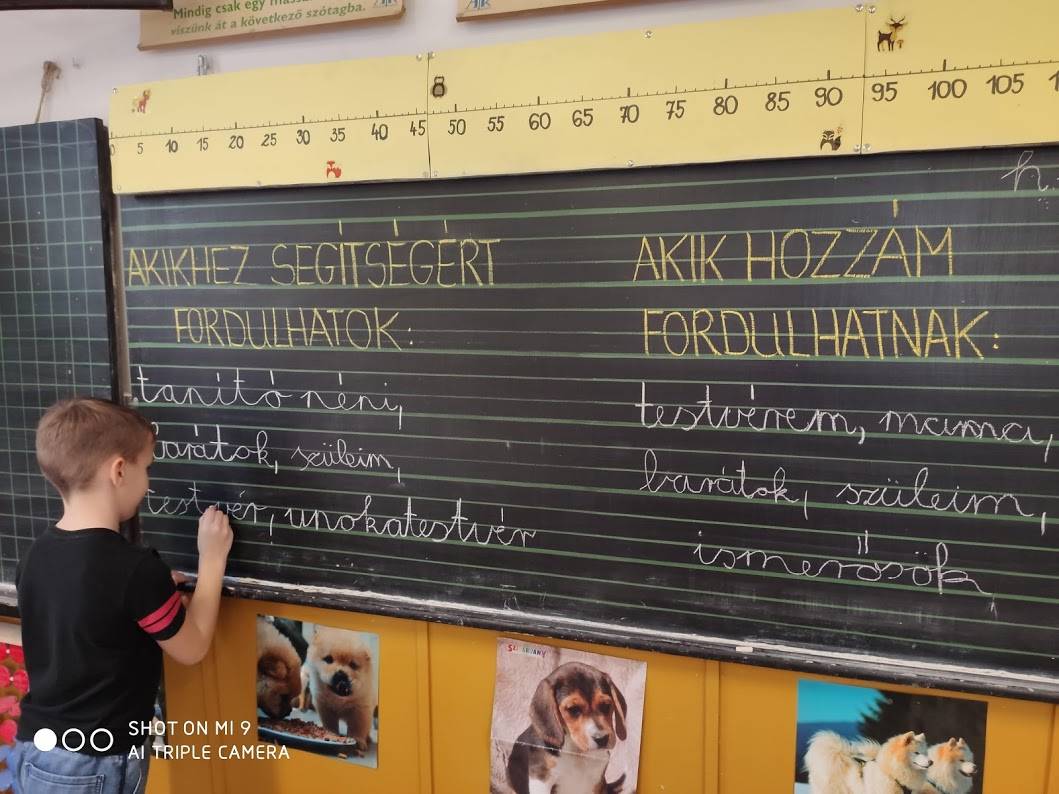 Mindig csak egy
viszünk át a következő szótagba.
0 5 10 15 20 25 30 35 40 45 50 55 60 65 70 75 80 85 90 95 100 105
h
AKIKHEZ SEGÍTSÉGÉRT
FORDULHATOK:
tanító néni,
barátok, szüleim,
testvér, unokatestvér
AKIK HOZZÁM
FORDULHATNAK:
testvérem, mama,
barátok, szüleim,
ismerősök
SHOT ON MI 9
AI TRIPLE CAMERA